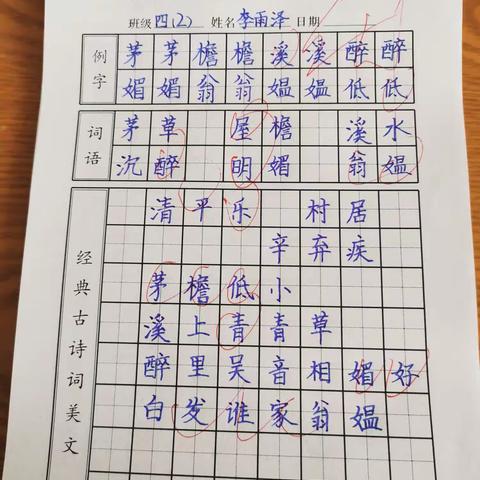 班级 四(2) 姓名 李雨泽 日期
例字
茅茅檐檐溪溪醉醉
媚媚翁翁媪媪低低
词语
茅草 屋檐 溪水
沉醉 明媚 翁媪
经典古诗词美文
清平乐 村居
辛弃疾
茅檐低小
溪上青青草
醉里吴音相媚好
白发谁家翁媪